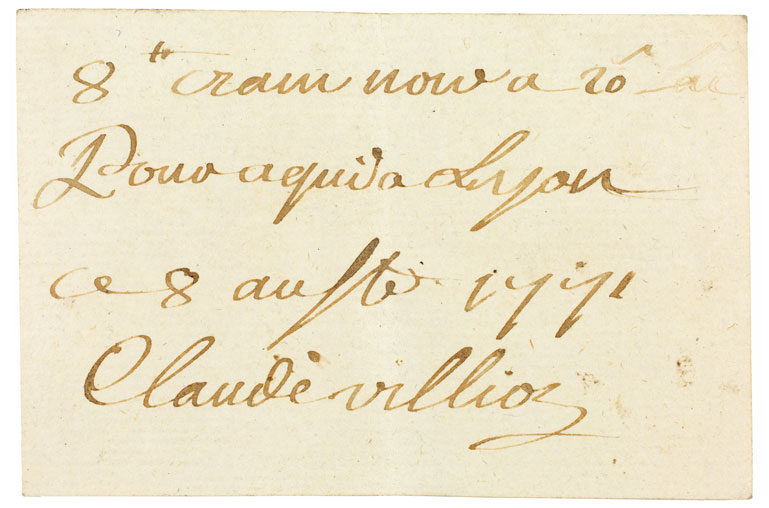 8 tt cram noue a 20 s
Pour aquida Lyon
ce 8 auste 1771
Claude villioz